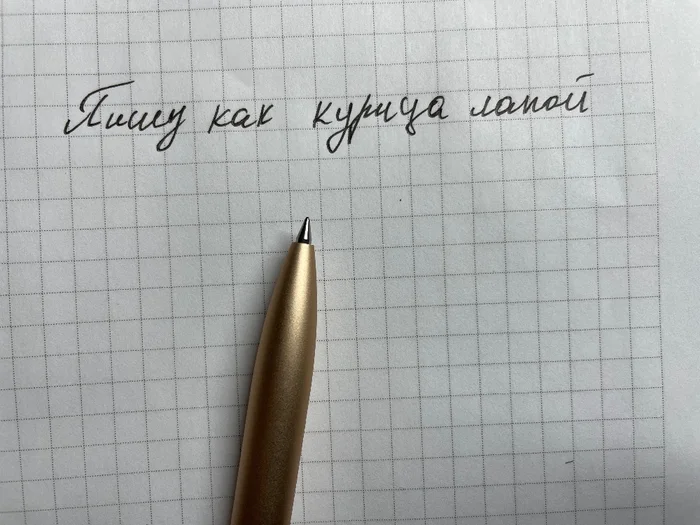 Пишу как курица лапой